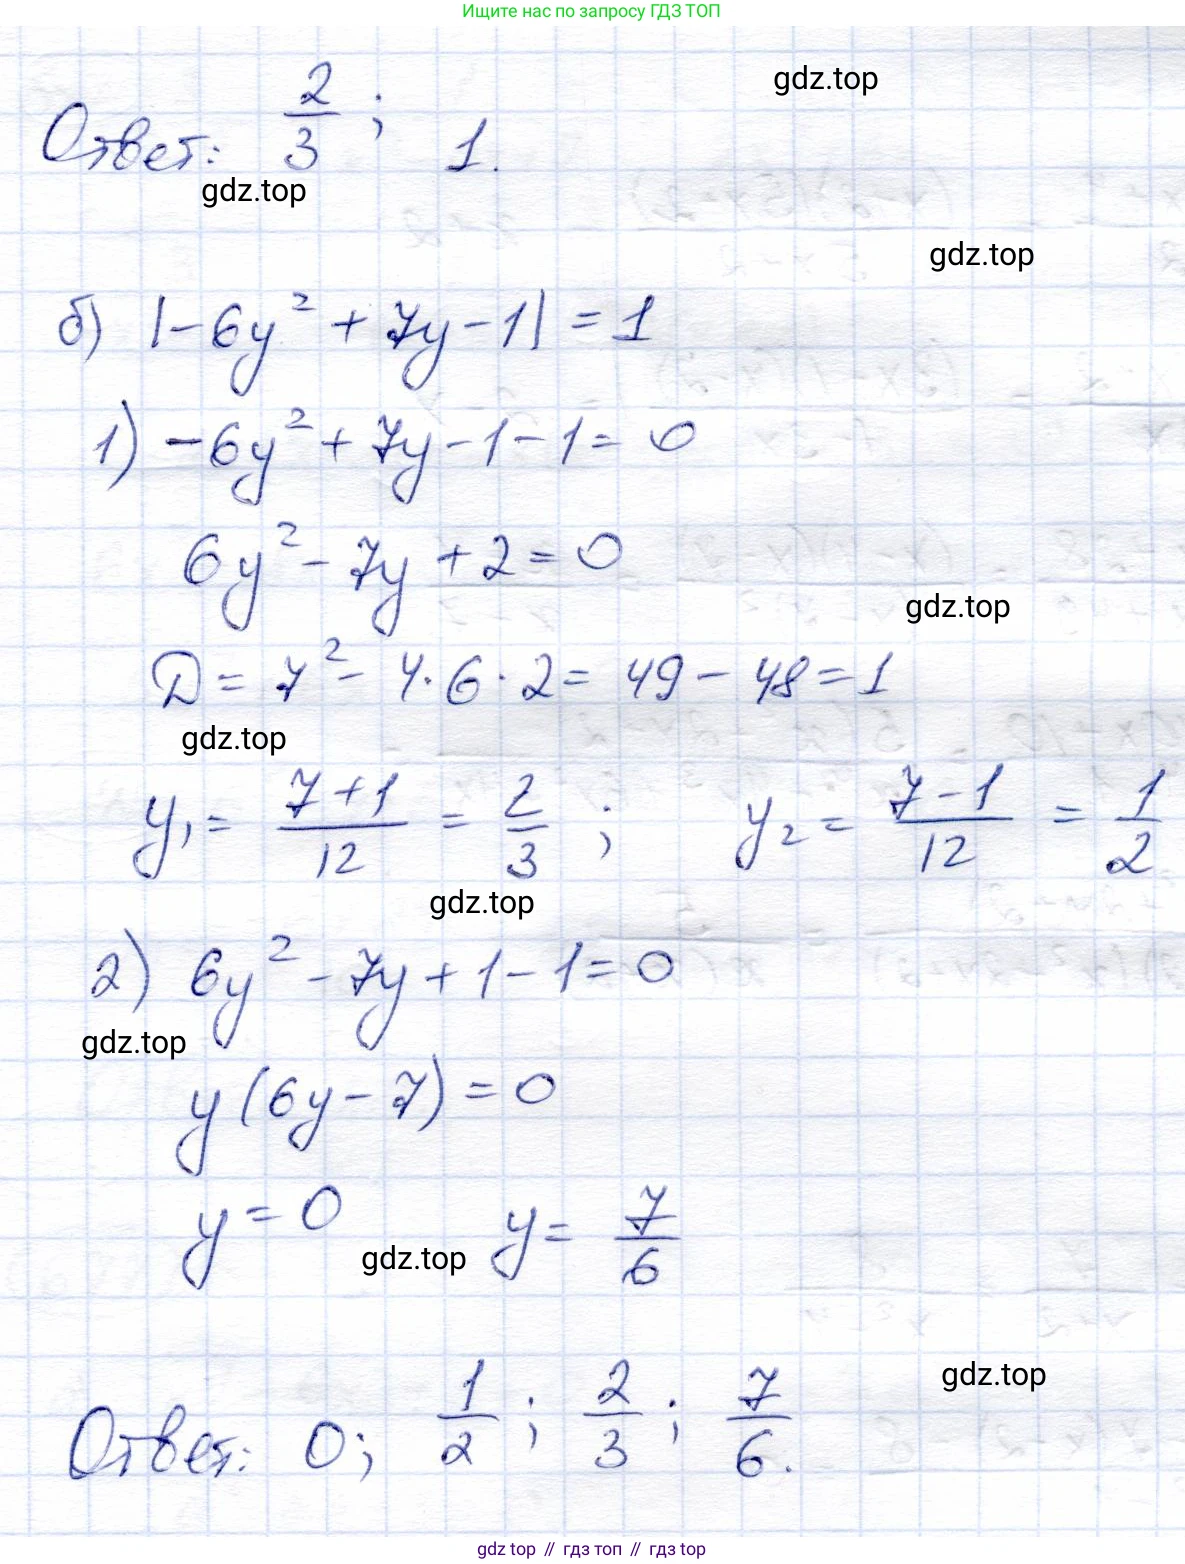 Ищите нас по запросу ГДЗ ТОП
gdz.top
Ответ: 2/3; 1.
gdz.top
gdz.top
б) |-6y² + 7y - 1| = 1
1) -6y² + 7y - 1 - 1 = 0
6y² - 7y + 2 = 0
gdz.top
D = 7² - 4·6·2 = 49 - 48 = 1
gdz.top
y₁ = (7+1)/12 = 2/3; y₂ = (7-1)/12 = 1/2
gdz.top
2) 6y² - 7y + 1 - 1 = 0
gdz.top
y(6y - 7) = 0
y = 0 y = 7/6
gdz.top
gdz.top
Ответ: 0; 1/2; 2/3; 7/6.
gdz top // гдз топ // гдз top